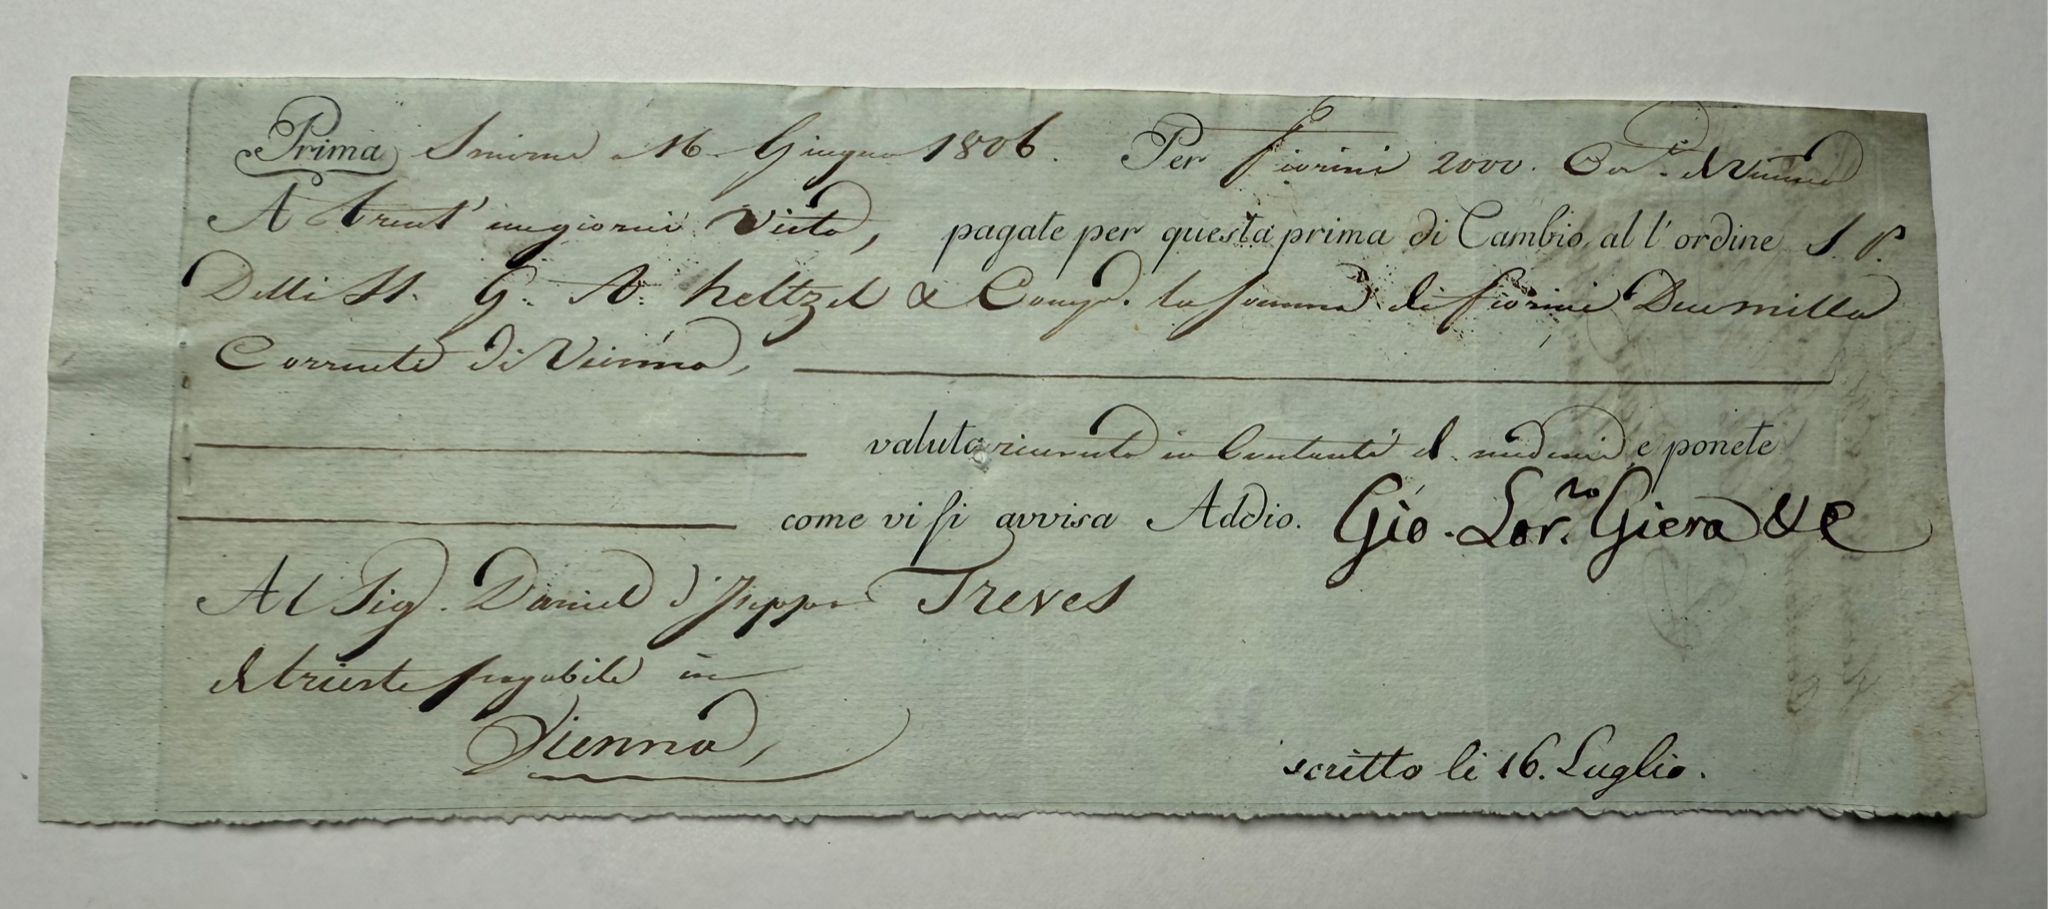 Prima Smirne a 16. Giugno 1806. Per fiorini 2000. Cor.ti di Vienna
A trent'un giorni Vista, pagate per questa prima di Cambio, al l'ordine S. P.
Delli SS. G. A. heltzel & Comp. la somma di fiorini Due milla
Corrente di Vienna,
valuta ricevuta in Contanti d. medemi e ponete
come vi si avvisa Addio. Gio. Lor.zo Giera & C
Al Sig. Daniel d' Treves
di trieste pagabile in
Vienna,
scritto li 16. Luglio.